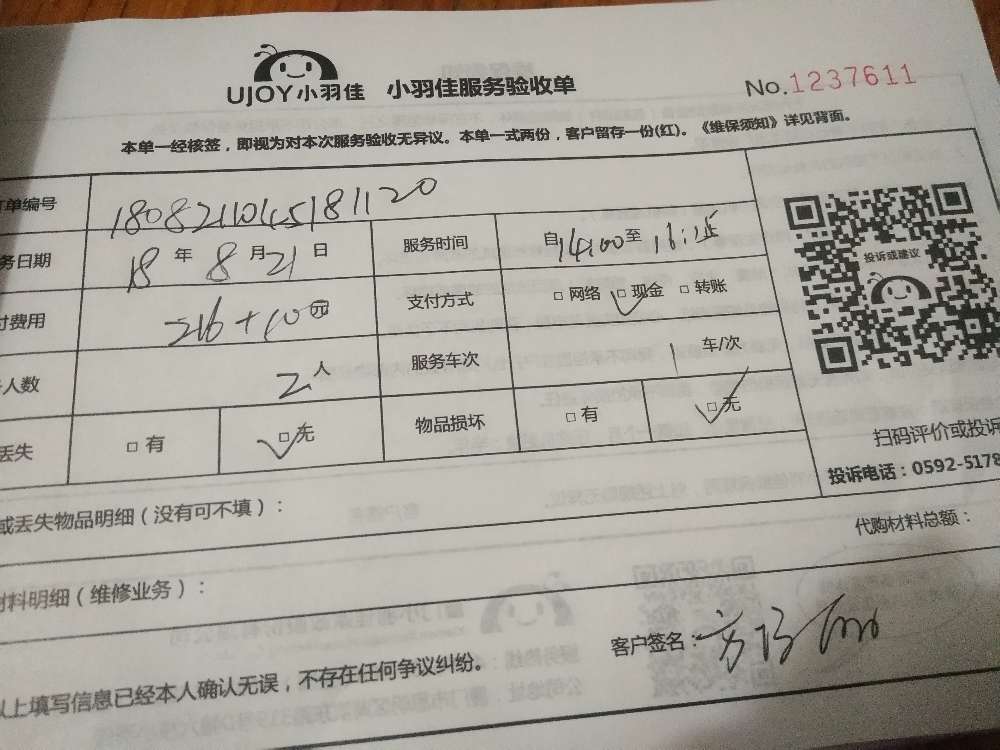 UJOY小羽佳 小羽佳服务验收单 No.1237611
本单一经核签，即视为对本次服务验收无异议。本单一式两份，客户留存一份(红)。《维保须知》详见背面。
单编号 1808211045181120
务日期 18年8月21日 服务时间 自14:00至16:15
费用 216+10元 支付方式 □网络 □现金 □转账
人数 2人 服务车次 1车/次
丢失 □有 □无 物品损坏 □有 □无
投诉或建议
扫码评价或投诉
投诉电话：0592-5178
或丢失物品明细（没有可不填）：
材料明细（维修业务）： 代购材料总额：
以上填写信息已经本人确认无误，不存在任何争议纠纷。 客户签名：